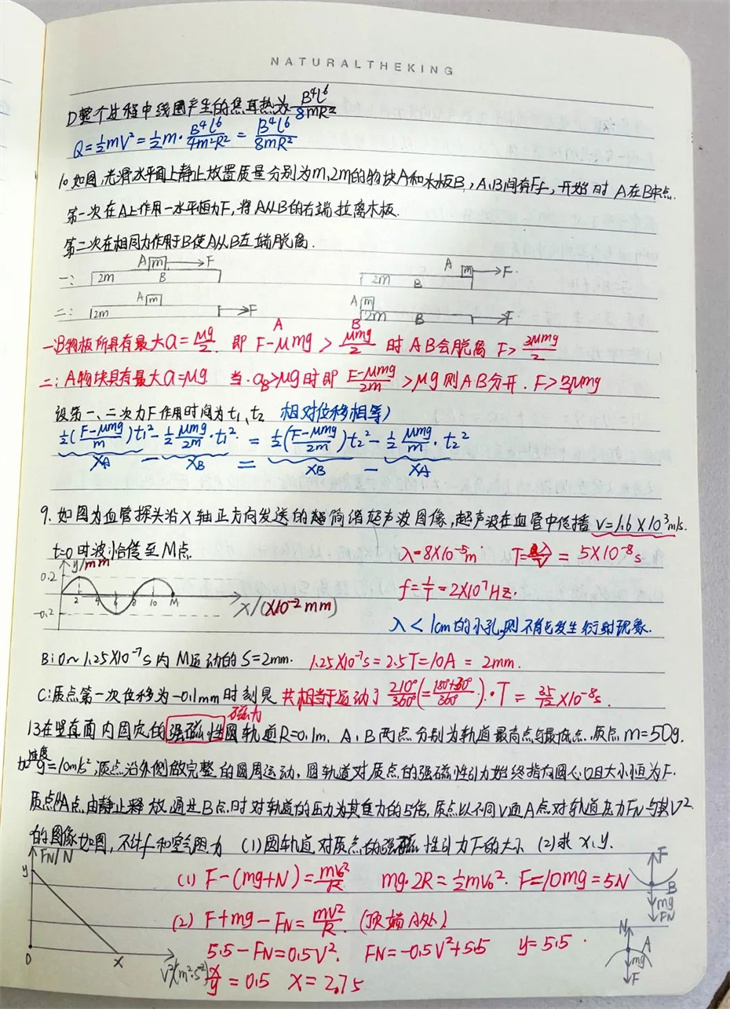 NATURALTHEKING
D整个过程中线圈产生的焦耳热为 B⁴l⁶/8mR²
Q=½mV²=½m·B⁴l⁶/4m²R²=B⁴l⁶/8mR²
10.如图,光滑水平面上静止放置质量分别为m,2m的物块A和木板B,A,B间有Ff,开始时A在B中点.
第一次在A上作用一水平恒力F,将A从B的右端拉离木板.
第二次在相同力作用于B使A从B左端脱离.
一: A m F 2m B A m F 2m B
二: A m 2m F A m 2m B F
一:B物板所具有最大a=μg/2. 即 F-μmg/A > μmg/2/B 时AB会脱离 F>3μmg/2
二:A物块具有最大a=μg 当aB>μg时即 F-μmg/2m >μg则AB分开.F>3μmg
设第一、二次力F作用时间为t₁、t₂ 相对位移相等)
½(F-μmg/m)t₁²-½μmg/2m·t₁² = ½(F-μmg/2m)t₂²-½μmg/m·t₂²
XA - XB = XB - XA
9.如图为血管探头沿X轴正方向发送的简谐超声波图像,超声波在血管中传播V=1.6×10³m/s.
t=0时波恰传至M点.
y/mm 0.2 -0.2 2 4 6 8 10 M X/(×10⁻²mm)
λ=8×10⁻⁵m T=λ/V=5×10⁻⁸s
f=1/T=2×10⁷Hz.
λ<1cm的小孔,则不能发生衍射现象.
B:0~1.25×10⁻⁷s内M运动的S=2mm. 1.25×10⁻⁷s=2.5T=10A=2mm.
C:质点第一次位移为-0.1mm时刻是 共相当于运动了210°/360°(=180°+30°/360°)·T=35/12×10⁻⁸s.
磁力
13在竖直面内固定的强磁性圆轨道R=0.1m. A,B两点分别为轨道最高点与最低点.质点m=50g.
g=10m/s²,质点沿外侧做完整的圆周运动,圆轨道对质点的强磁性引力始终指向圆心O且大小恒为F.
质点从A点由静止释放通过B点时对轨道的压力为其重力的5倍,质点以不同V通A点对轨道压力FN与其V²
的图像如图,不计f和空气阻力 (1)圆轨道对质点的强磁性引力F的大小 (2)求x,y.
FN/N y 0 x V²(m²·s⁻²)
(1) F-(mg+N)=mV₀²/R mg·2R=½mV₀². F=10mg=5N
(2) F+mg-FN=mV²/R. (顶端A处)
5.5-FN=0.5V². FN=-0.5V²+5.5 y=5.5.
x/y=0.5 x=2.75
F B mg FN
N A mg F